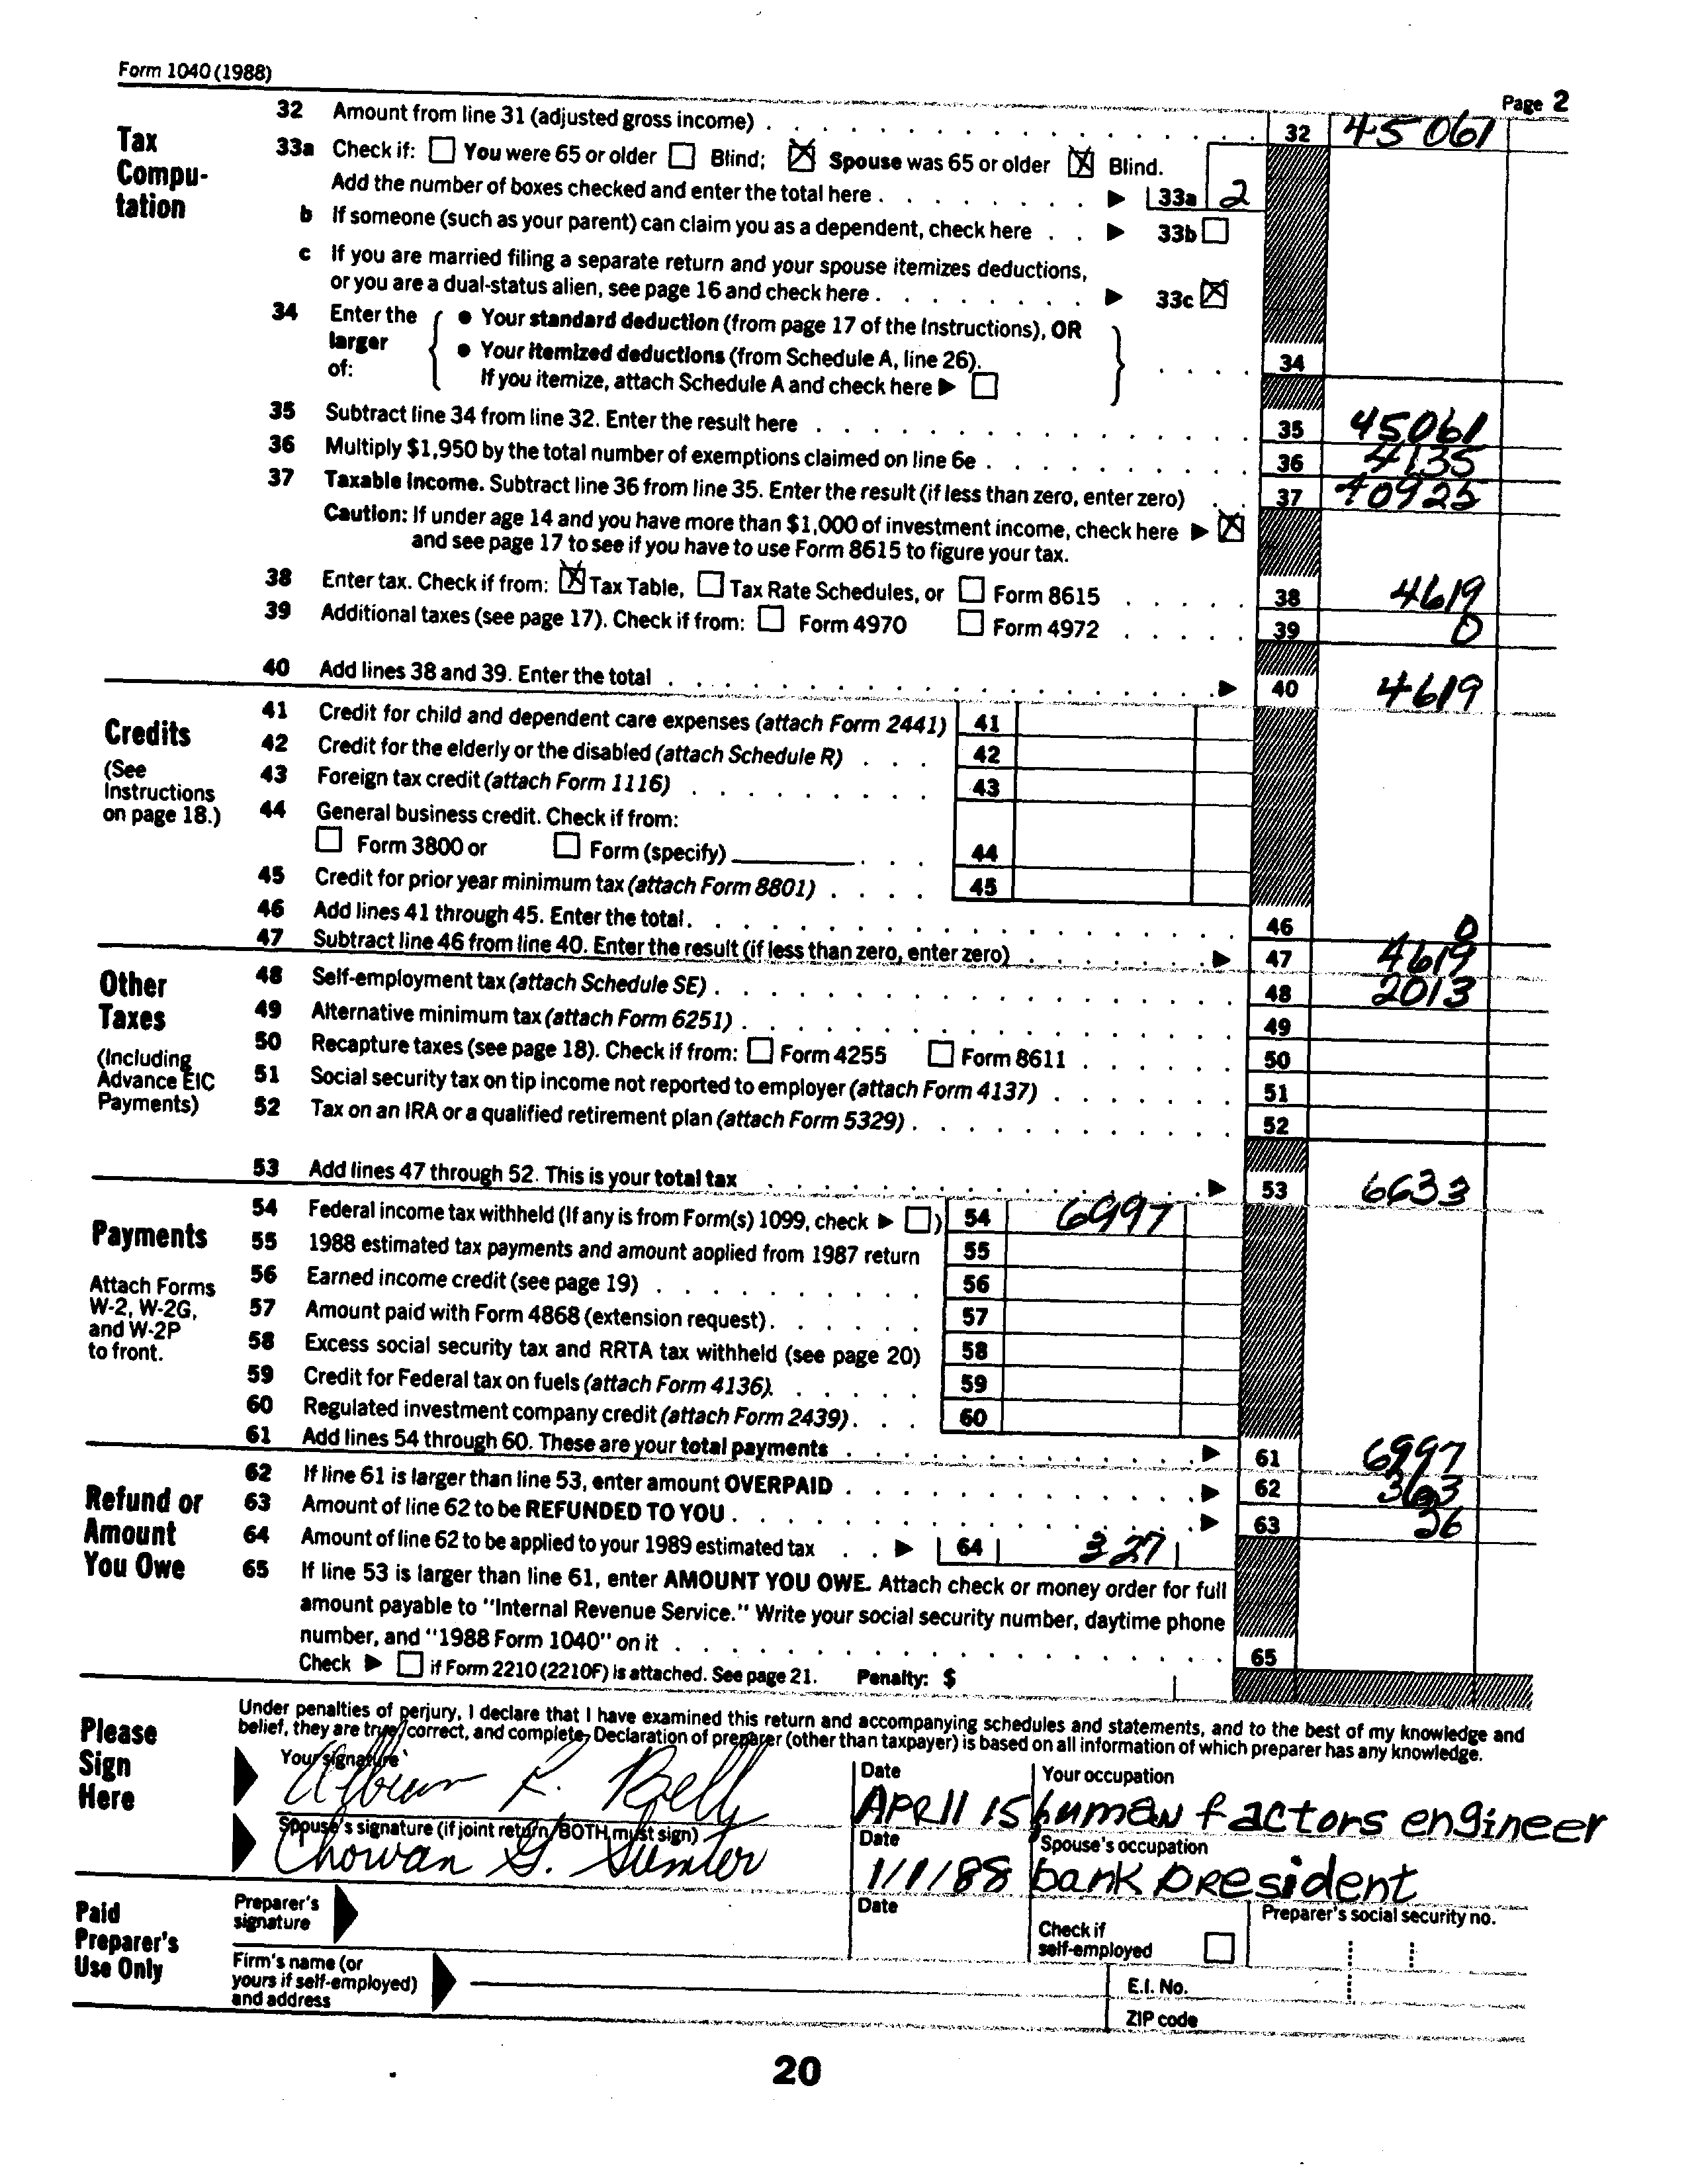 Form 1040 (1988)
Page 2
Tax Compu-tation
32 Amount from line 31 (adjusted gross income) . . . . 32 45061
33a Check if: ☐ You were 65 or older ☐ Blind; ☒ Spouse was 65 or older ☒ Blind.
Add the number of boxes checked and enter the total here . . . . ▶ 33a 2
b If someone (such as your parent) can claim you as a dependent, check here . . ▶ 33b ☐
c If you are married filing a separate return and your spouse itemizes deductions,
or you are a dual-status alien, see page 16 and check here . . . . ▶ 33c ☒
34 Enter the larger of: { ● Your standard deduction (from page 17 of the Instructions), OR
● Your itemized deductions (from Schedule A, line 26).
If you itemize, attach Schedule A and check here ▶ ☐ } . . . . 34
35 Subtract line 34 from line 32. Enter the result here . . . . 35 45061
36 Multiply $1,950 by the total number of exemptions claimed on line 6e . . . . 36 4135
37 Taxable income. Subtract line 36 from line 35. Enter the result (if less than zero, enter zero) . . 37 40925
Caution: If under age 14 and you have more than $1,000 of investment income, check here ▶ ☒
and see page 17 to see if you have to use Form 8615 to figure your tax.
38 Enter tax. Check if from: ☒ Tax Table, ☐ Tax Rate Schedules, or ☐ Form 8615 . . . . 38 4619
39 Additional taxes (see page 17). Check if from: ☐ Form 4970 ☐ Form 4972 . . . . 39 0
40 Add lines 38 and 39. Enter the total . . . . ▶ 40 4619
Credits
(See Instructions on page 18.)
41 Credit for child and dependent care expenses (attach Form 2441) 41
42 Credit for the elderly or the disabled (attach Schedule R) . . . 42
43 Foreign tax credit (attach Form 1116) . . . . 43
44 General business credit. Check if from:
☐ Form 3800 or ☐ Form (specify) ________ . . . 44
45 Credit for prior year minimum tax (attach Form 8801) . . . . 45
46 Add lines 41 through 45. Enter the total. . . . . 46 0
47 Subtract line 46 from line 40. Enter the result (if less than zero, enter zero) . . . . ▶ 47 4619
Other Taxes
(Including Advance EIC Payments)
48 Self-employment tax (attach Schedule SE) . . . . 48 2013
49 Alternative minimum tax (attach Form 6251) . . . . 49
50 Recapture taxes (see page 18). Check if from: ☐ Form 4255 ☐ Form 8611 . . . . 50
51 Social security tax on tip income not reported to employer (attach Form 4137) . . . . 51
52 Tax on an IRA or a qualified retirement plan (attach Form 5329) . . . . 52
53 Add lines 47 through 52. This is your total tax . . . . ▶ 53 6633
Payments
Attach Forms W-2, W-2G, and W-2P to front.
54 Federal income tax withheld (If any is from Form(s) 1099, check ▶ ☐) 54 6997
55 1988 estimated tax payments and amount aoplied from 1987 return 55
56 Earned income credit (see page 19) . . . . 56
57 Amount paid with Form 4868 (extension request). . . . . 57
58 Excess social security tax and RRTA tax withheld (see page 20) 58
59 Credit for Federal tax on fuels (attach Form 4136). . . . . 59
60 Regulated investment company credit (attach Form 2439). . . 60
61 Add lines 54 through 60. These are your total payments . . . . ▶ 61 6997
Refund or Amount You Owe
62 If line 61 is larger than line 53, enter amount OVERPAID . . . . ▶ 62 363
63 Amount of line 62 to be REFUNDED TO YOU . . . . ▶ 63 36
64 Amount of line 62 to be applied to your 1989 estimated tax . . ▶ 64 327
65 If line 53 is larger than line 61, enter AMOUNT YOU OWE. Attach check or money order for full
amount payable to "Internal Revenue Service." Write your social security number, daytime phone
number, and "1988 Form 1040" on it . . . . 65
Check ▶ ☐ if Form 2210 (2210F) is attached. See page 21. Penalty: $
Please Sign Here
Under penalties of perjury, I declare that I have examined this return and accompanying schedules and statements, and to the best of my knowledge and
belief, they are true, correct, and complete. Declaration of preparer (other than taxpayer) is based on all information of which preparer has any knowledge.
Your signature Date Your occupation
R. Belly APRIl 15 human factors engineer
Spouse's signature (if joint return, BOTH must sign) Date Spouse's occupation
Chowan G. Sumter 1/1/88 bank president
Paid Preparer's Use Only
Preparer's signature Date Check if self-employed ☐ Preparer's social security no.
Firm's name (or yours if self-employed) and address E.I. No.
ZIP code
20